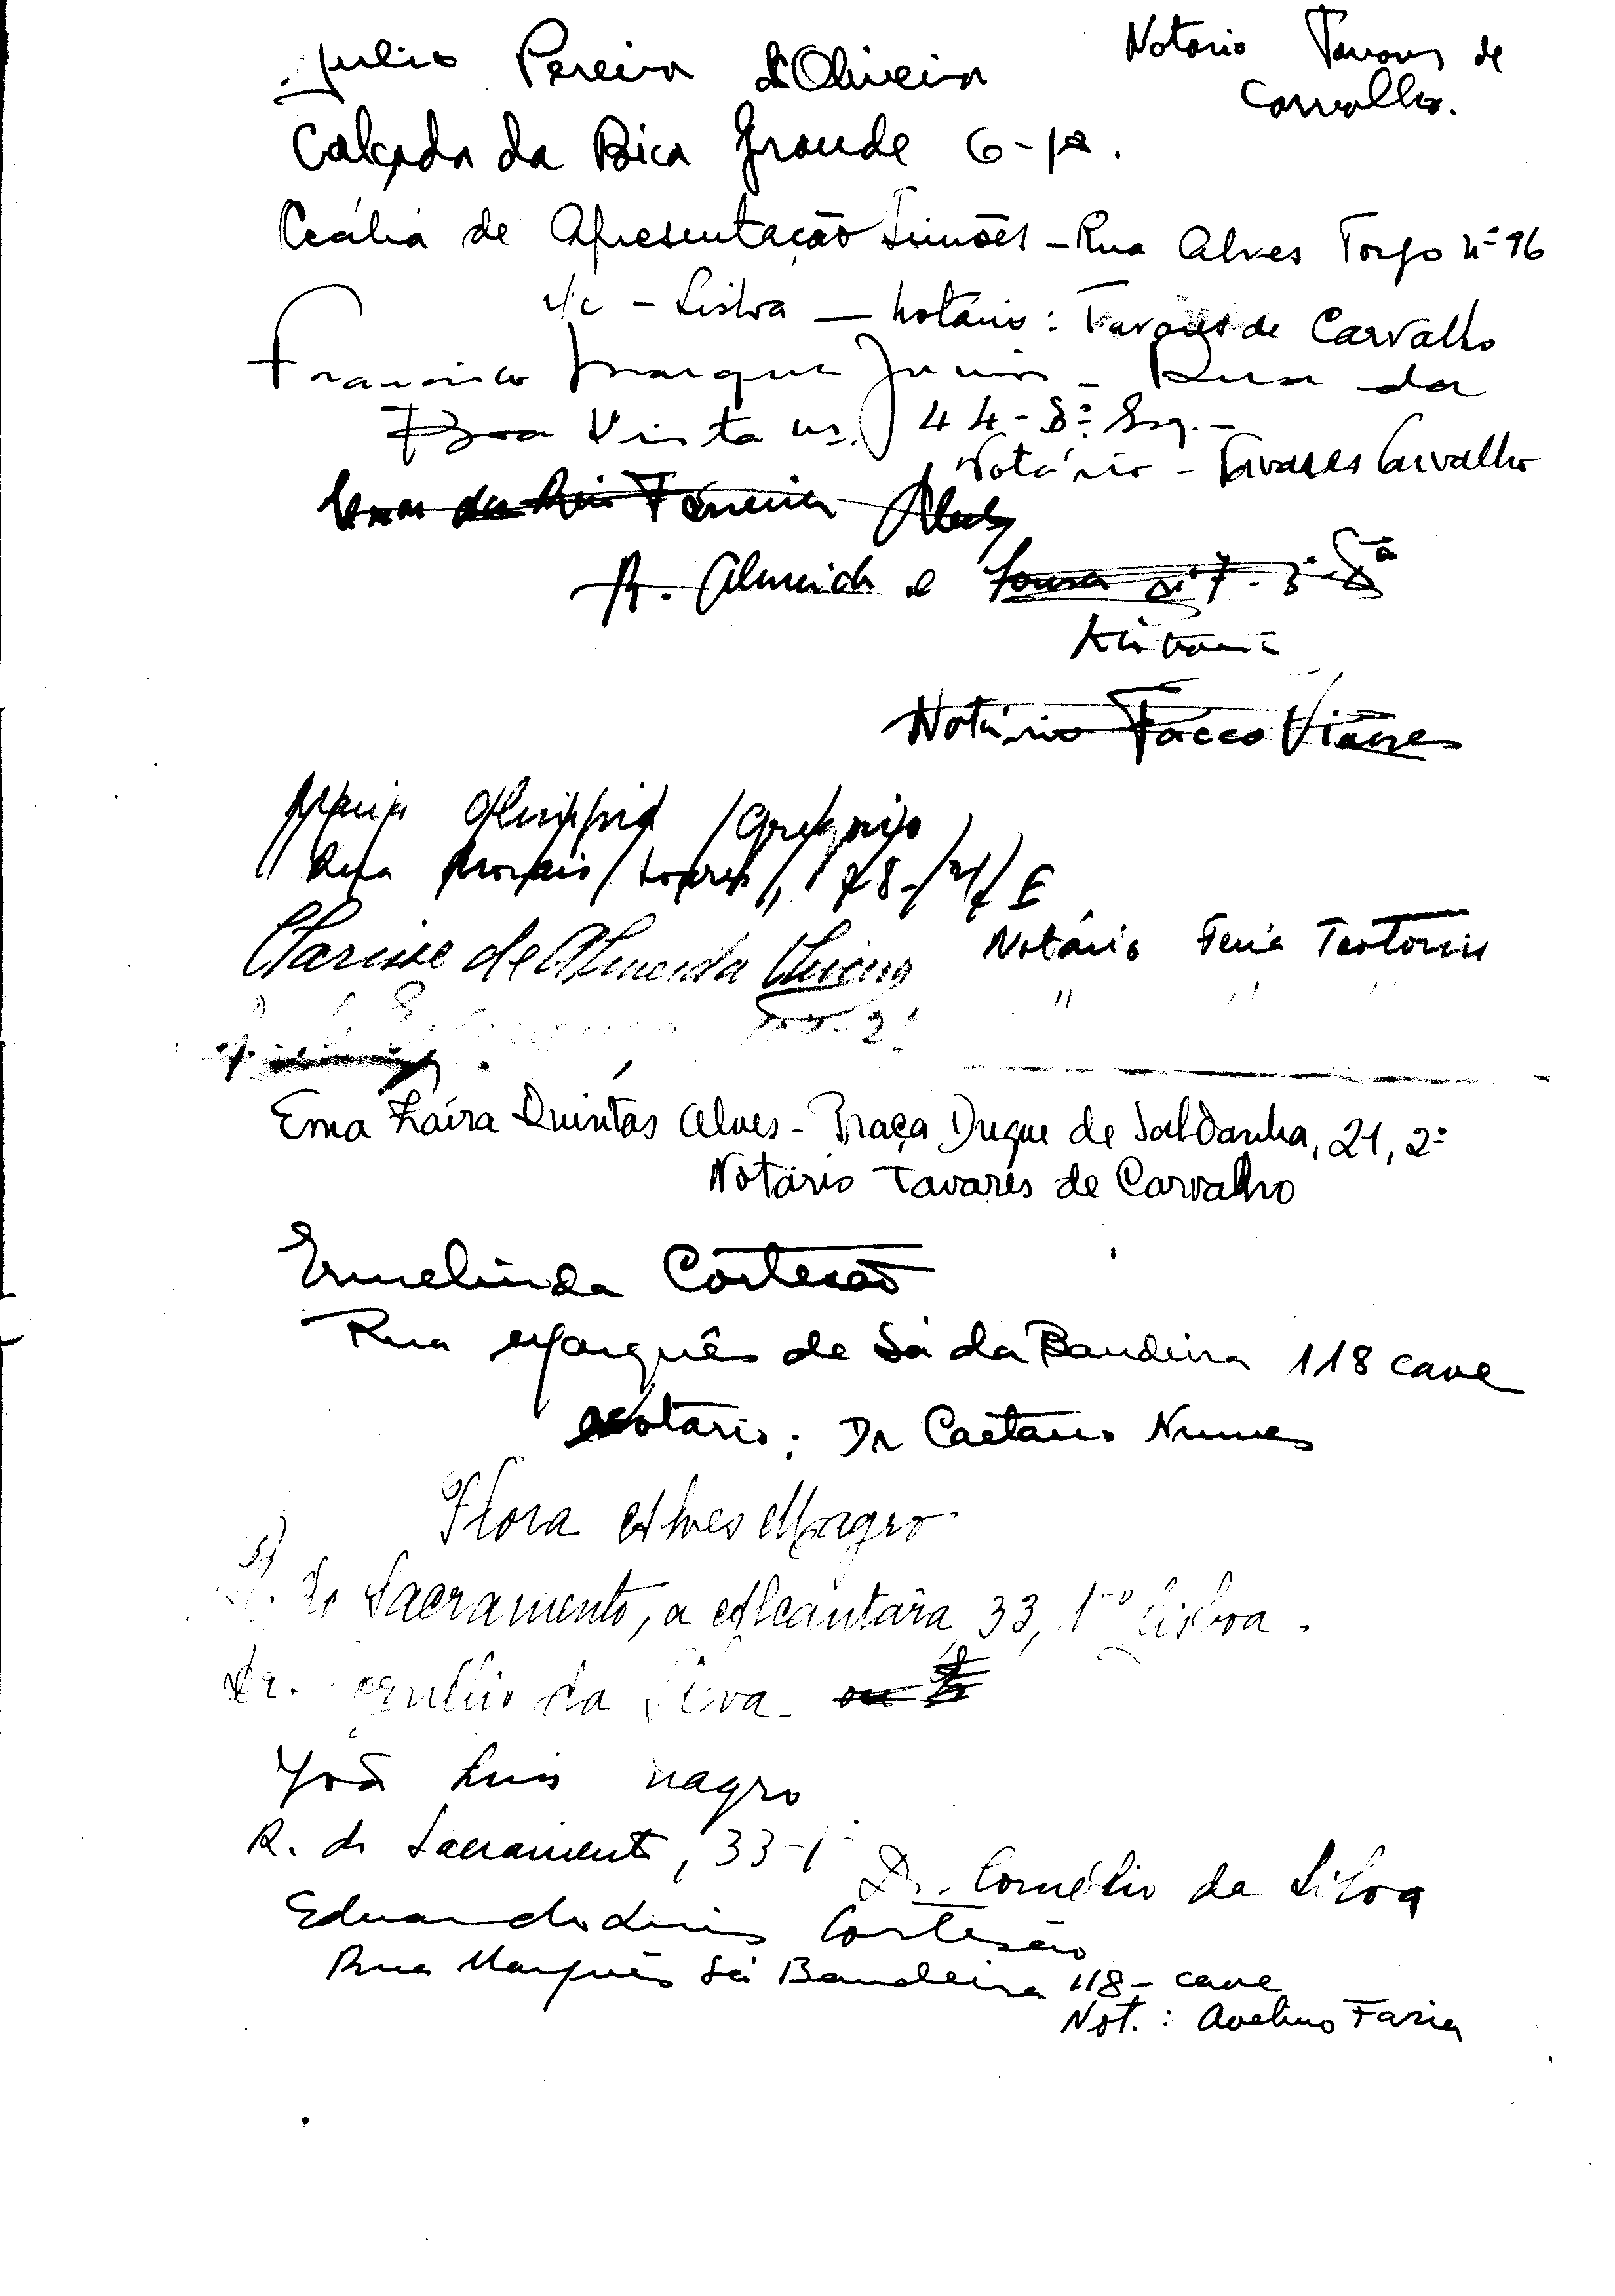 Julio Pereira d'Oliveira
Notario Tavares de
Carvalho.
Calçada da Bica Grande 6-1º.
Cecília de Apresentação Simões - Rua Alves Torgo nº 96
r/c - Lisboa - Notário: Tavares de Carvalho
Francisco Marques Junior - Rua da
Boa Vista nº 44-3º Esq. -
Notário - Tavares Carvalho
Ferreira Alves
R. Almeida e Sousa nº 7 - 3º
Notário
Maria Olimpia Gregorio
Rua Morais Soares, 78-
Clarisse de Almeida Oliveira
Notário Feria Teotonio
" " "
Ema Zaíra Quintas Alves - Praça Duque de Saldanha, 21, 2º
Notário Tavares de Carvalho
Ermelinda Cortesão
Rua Marquês de Sá da Bandeira 118 cave
Notário: Dr Caetano Nunes
Flora Alves Magro
R. do Sacramento, a Alcantara, 33, 1º Lisboa.
Dr. Cornélio da Silva
João Luis Magro
R. do Sacramento, 33-1º
Dr. Cornélio da Silva
Eduardo Luis Cortesão
Rua Marquês Sá Bandeira 118 - cave
Not.: Avelino Faria